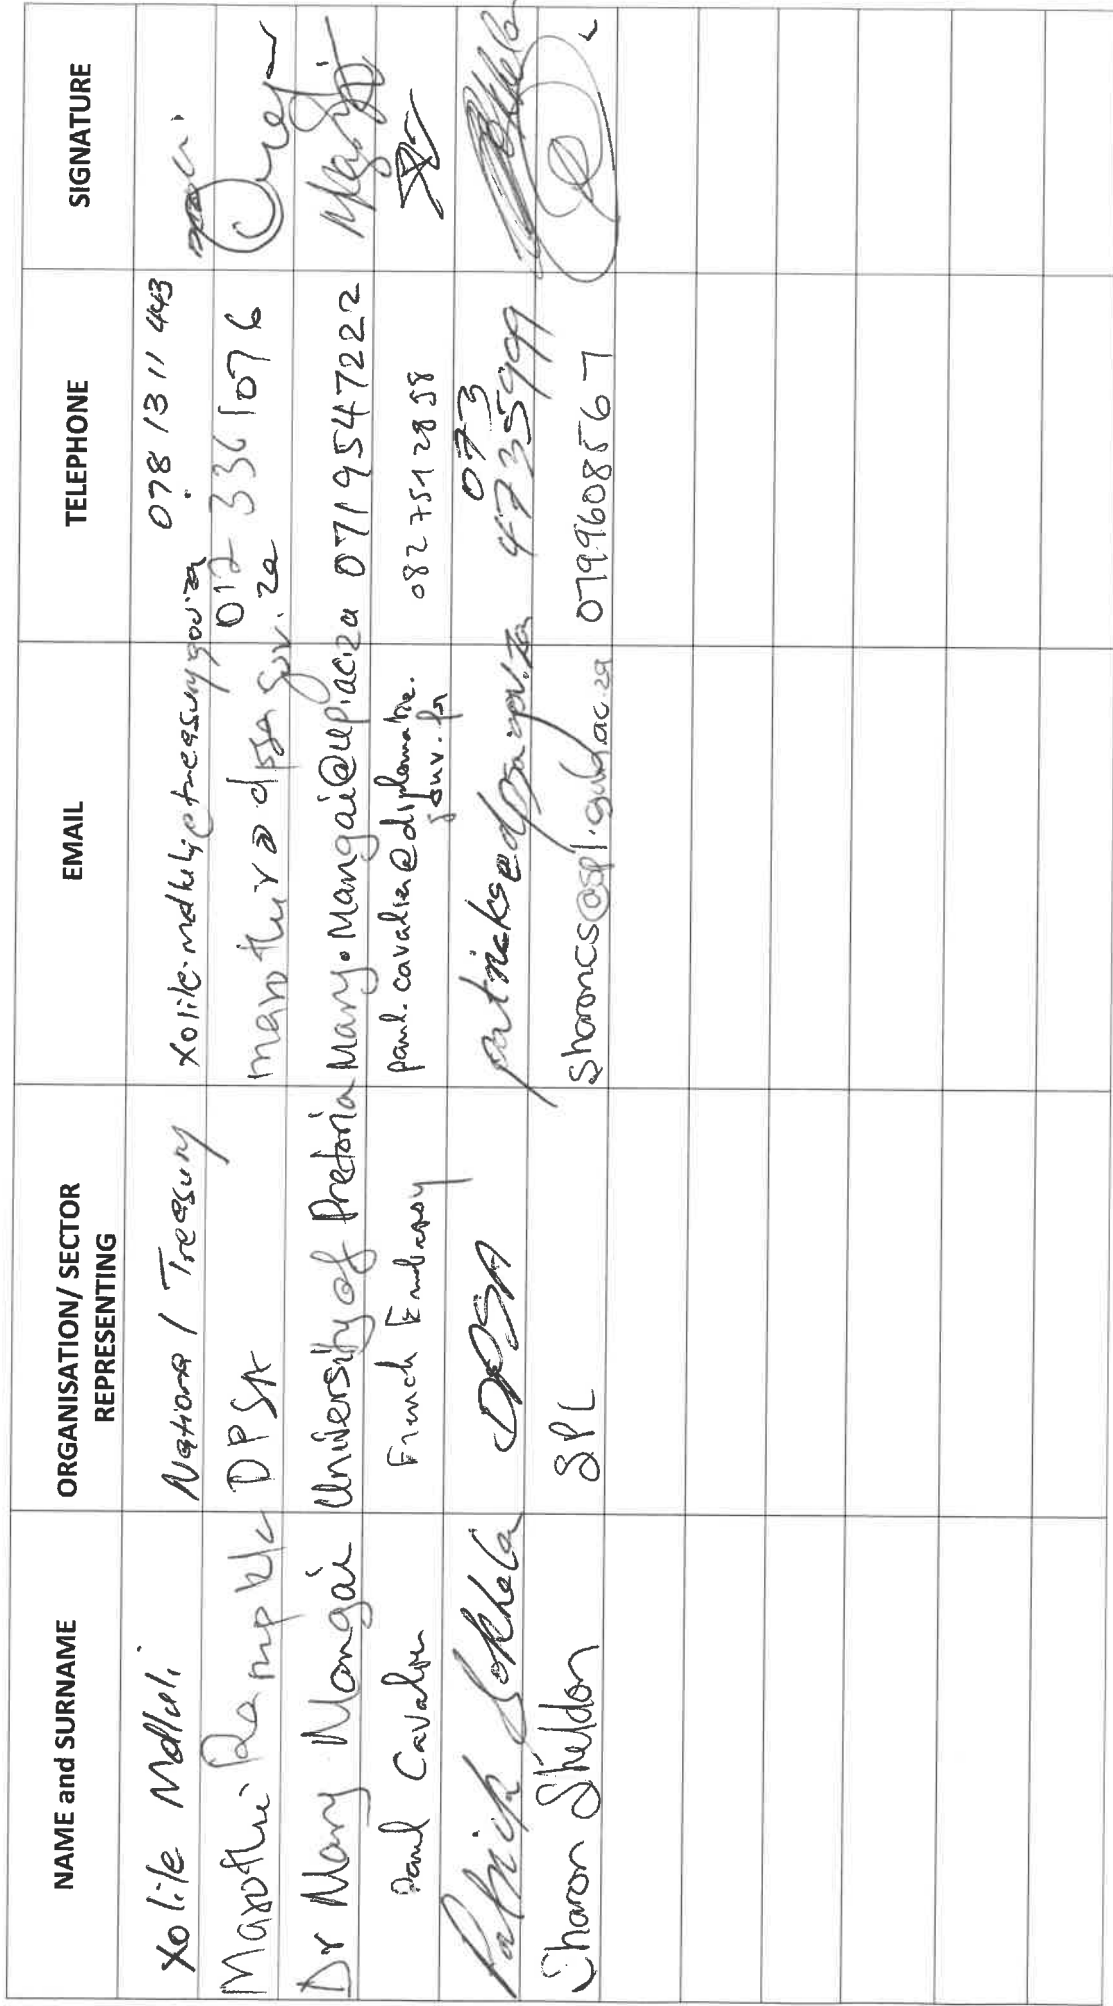 NAME and SURNAME
ORGANISATION/ SECTOR
REPRESENTING
EMAIL
TELEPHONE
SIGNATURE
Xolile Mdluli
National Treasury
xolile.mdluli@treasury.gov.za
078 13 11 443
Marothi
DPSA
marothir@dpsa.gov.za
012 336 1076
Dr Mary Mangai
University of Pretoria
Mary.Mangai@up.ac.za
0719547222
Paul Cavalier
French Embassy
paul.cavalier@diplomatie.
gouv.fr
082 751 28 58
Patrick Sokhela
DPSA
patricks@dpsa.gov.za
073
4735999
Sharon Sheldon
SPL
0799608567